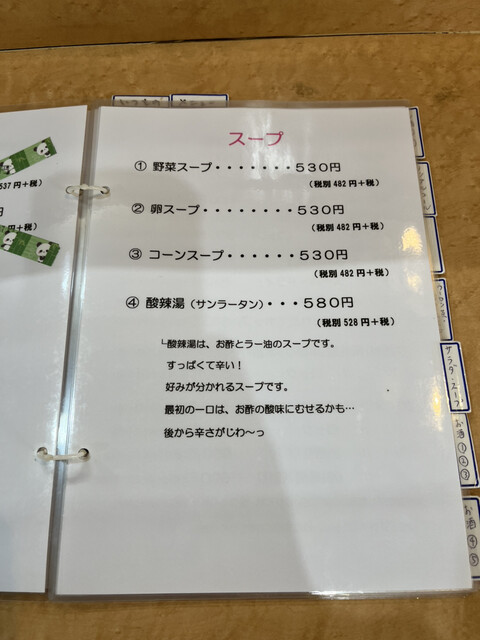 537円+税)
円
円+税)
スープ
① 野菜スープ・・・・・・・530円
(税別 482円+税)
② 卵スープ・・・・・・・・530円
(税別 482円+税)
③ コーンスープ・・・・・・530円
(税別 482円+税)
④ 酸辣湯(サンラータン)・・・580円
(税別 528円+税)
└酸辣湯は、お酢とラー油のスープです。
すっぱくて辛い!
好みが分かれるスープです。
最初の一口は、お酢の酸味にむせるかも…
後から辛さがじわ～っ
サラダ・スープ
お酒①②③
お酒④⑤